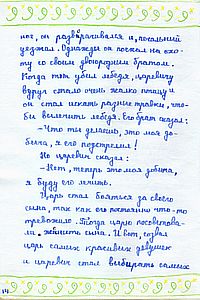 ног, он разворачивался и, печальний
уезжал. Однажды он поехал на охо-
ту со своим двоюродным братом.
Когда тот убил лебедя, царевичу
вдруг стало очень жалко птицу и
он стал искать разные травки, что-
бы вылечить лебедя. Его брат сказал:
- Что ты делаешь, это моя до-
быча, я его подстрелил!
Но царевич сказал:
- Нет, теперь это моя добыча,
я буду его лечить.
Царь стал бояться за своего
сына, так как его постоянно что-то
тревожило. Тогда царю посоветова-
ли женить сына. И вот, созвал
царь самых красивых девушек
и царевич стал выбирать самых
14